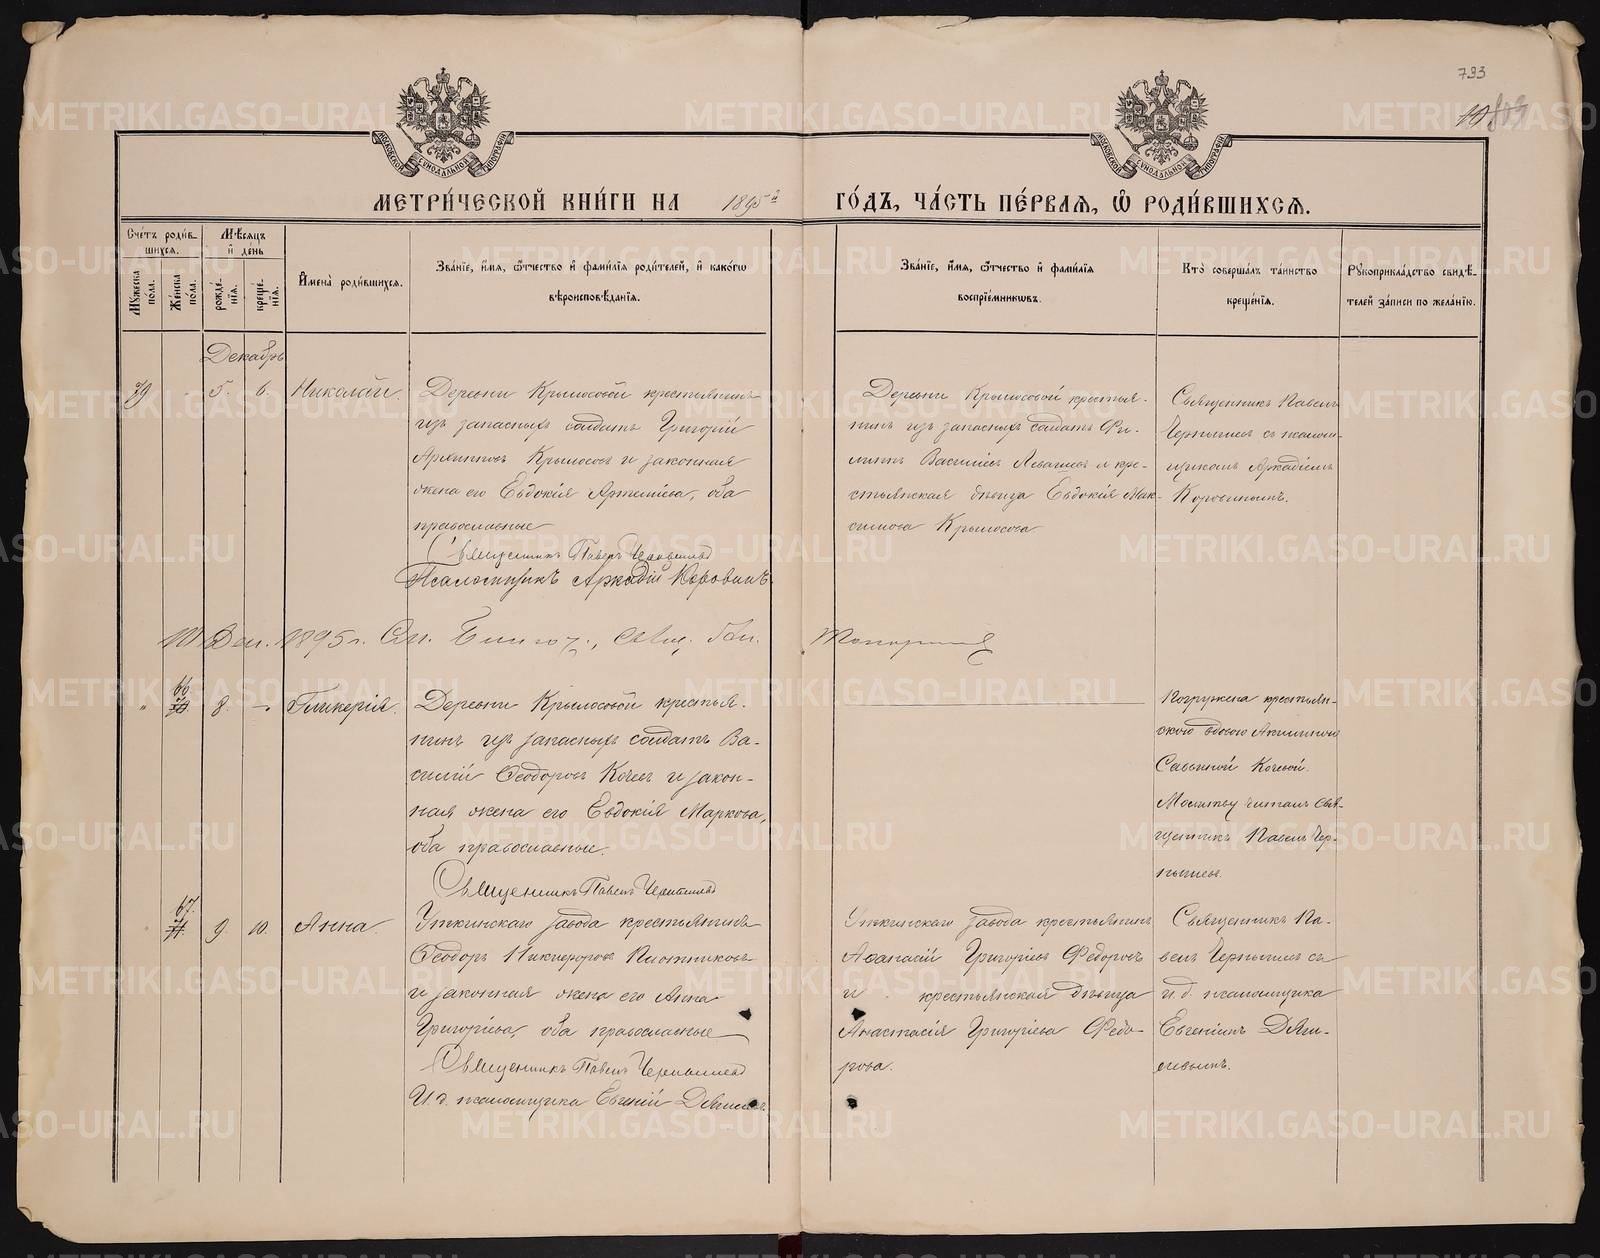 733
809
МОСКОВСКОЙ СѴНОДАЛЬНОЙ ТИПОГРАФІИ
МОСКОВСКОЙ СѴНОДАЛЬНОЙ ТИПОГРАФІИ
МЕТРИ́ЧЕСКОЙ КНИ́ГИ НА 1895й ГО́ДЪ, ЧА́СТЬ ПЕ́РВАѦ, Ѡ҆ РОДИ́ВШИХСѦ.
Сче́тъ роди́в-
шихсѧ.
Мꙋ́жеска по́ла.
Же́нска по́ла.
Мѣ́сѧцъ и҆ де́нь
рожде́-нїѧ.
креще́-нїѧ.
И҆мена̀ роди́вшихсѧ.
Зва́нїе, и҆́мѧ, ѻ҆́тчество и҆ фами́лїѧ роди́телей, и҆ како́гѡ
вѣроисповѣ́данїѧ.
Зва́нїе, и҆́мѧ, ѻ҆́тчество и҆ фами́лїѧ
воспрїе́мникѡвъ.
Кто̀ соверша́лъ та́инство
креще́нїѧ.
Рꙋкоприкла́дство свидѣ́-
телей за́писи по жела́нїю.
Декабрь
79 - 5. 6. Николай.
Деревни Крылосовой крестьянинъ
изъ запасныхъ солдатъ Григорій
Архиповъ Крылосовъ и законная
жена его Евдокія Артемьева, оба
православные
Священникъ Павелъ Чернышевъ
Псаломщикъ Аркадій Коровинъ
Деревни Крылосовой крестья-
нинъ изъ запасныхъ солдатъ Фи-
липпъ Васильевъ и кре-
стьянская дѣвица Евдокія Мак-
симова Крылосова
Священникъ Павелъ
Чернышевъ съ псалом-
щикомъ Аркадіемъ
Коровинымъ.
10 Дек. 1895 г. Сп. Благоч., Свящ.
66
70 8. -. Гликерія.
Деревни Крылосовой крестья-
нинъ изъ запасныхъ солдатъ Ва-
силій Ѳеодоровъ Кочевъ и закон-
ная жена его Евдокія Маркова,
оба православные.
Священникъ Павелъ Чернышевъ
Погружена крестьян-
скою вдовою
Савиной Кочевой.
Молитву читалъ Свя-
щенникъ Павелъ Чер-
нышевъ.
67.
71. 9. 10. Анна.
Уткинскаго завода крестьянинъ
Ѳеодоръ Никифоровъ Плотниковъ
и законная жена его Анна
Григорьева, оба православные
Священникъ Павелъ Чернышевъ
И. д. псаломщика Евгеній Дягилевъ
Уткинскаго завода крестьянинъ
Аѳанасій Григорьевъ Федоровъ
и крестьянская дѣвица
Анастасія Григорьева Федо-
рова.
Священникъ Па-
велъ Чернышевъ съ
и. д. псаломщика
Евгеніемъ Дяги-
левымъ.
METRIKI.GASO-URAL.RU